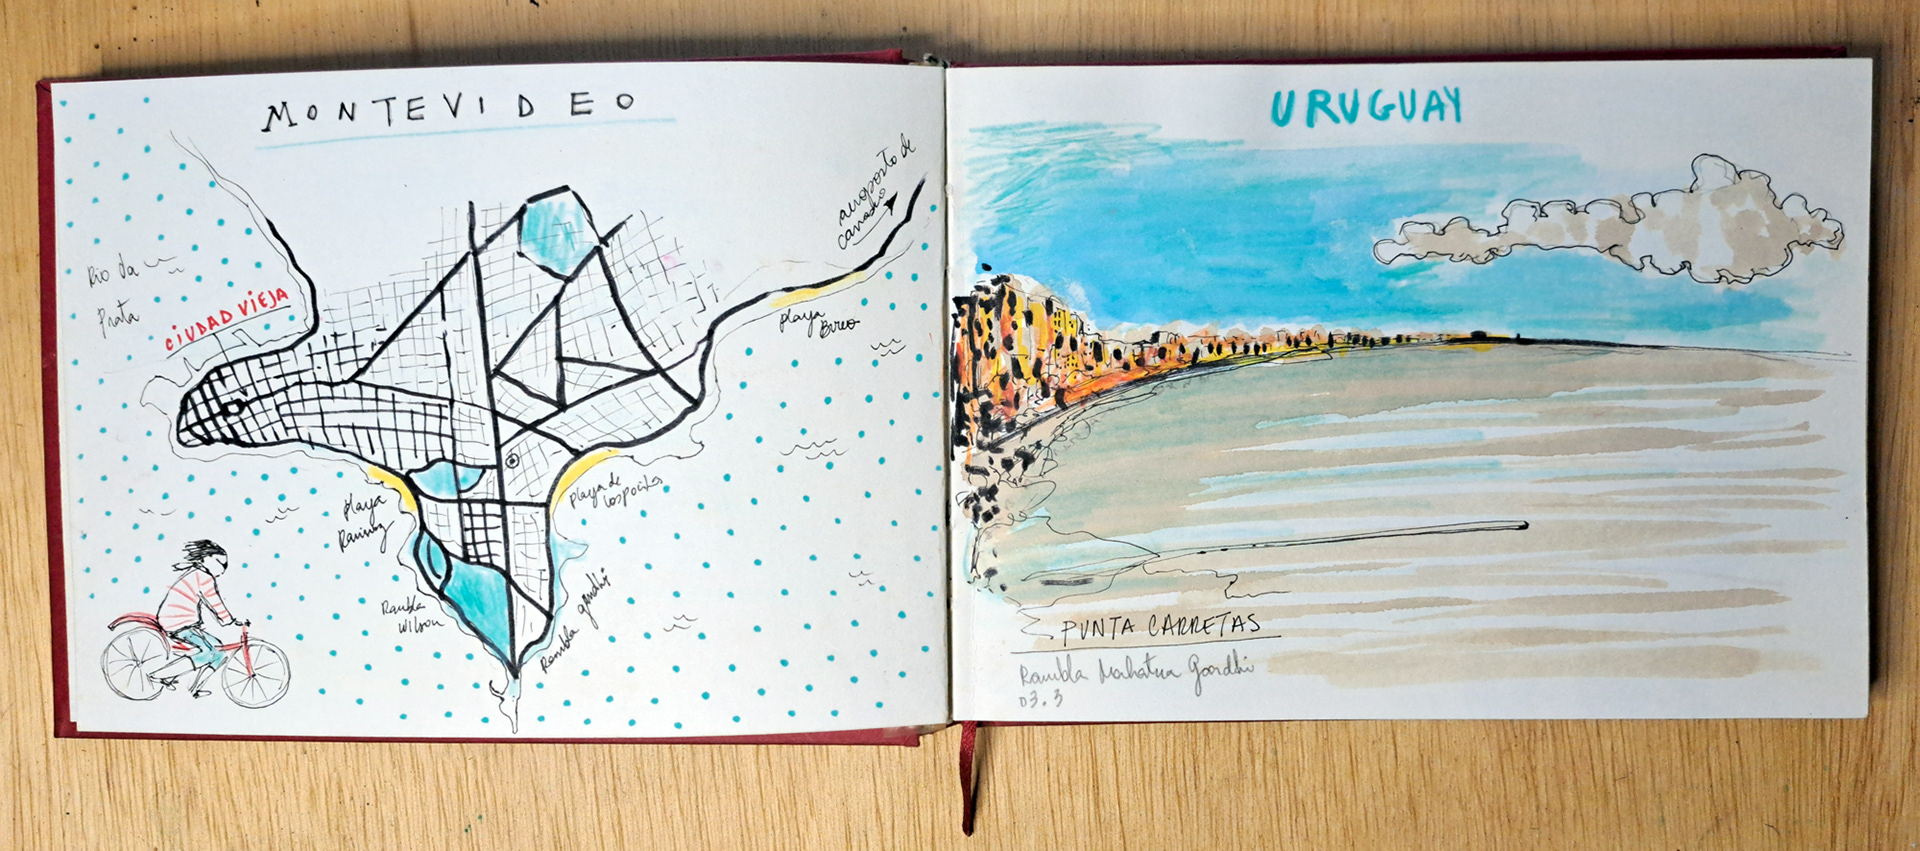 MONTEVIDEO
Rio da
Prata
CIUDAD VIEJA
aeroporto de
carrasco
playa
Buceo
playa
Ramirez
playa de
los pocitos
Rambla
Wilson
Rambla gandhi
URUGUAY
PUNTA CARRETAS
Rambla Mahatma Gandhi
03.3